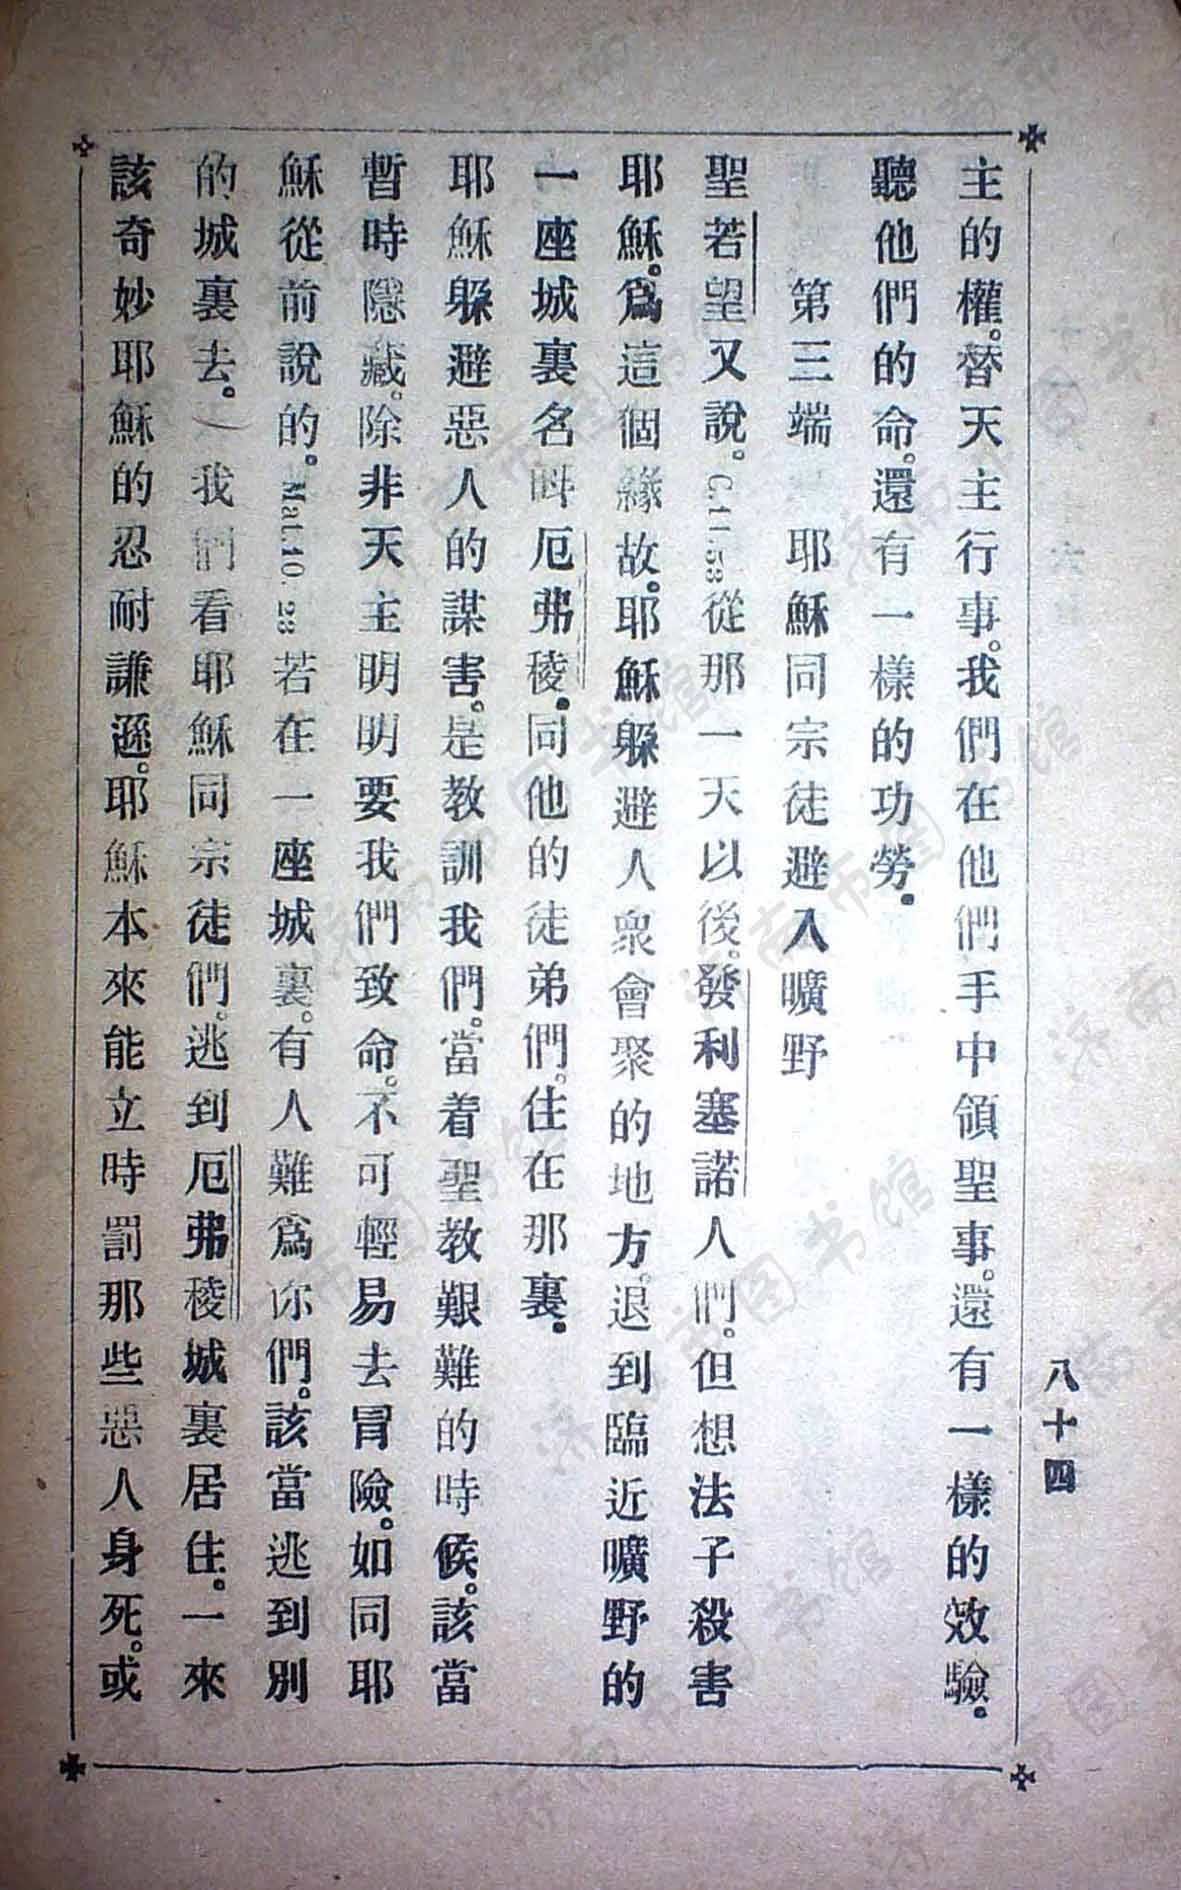 主的權。替天主行事。我們在他們手中領聖事。還有一樣的效驗。
聽他們的命。還有一樣的功勞。
第三端　耶穌同宗徒避入曠野
聖若望又說。C. 11. 53 從那一天以後。發利塞諾人們。但想法子殺害
耶穌。爲這個緣故。耶穌躲避人衆會聚的地方。退到臨近曠野的
一座城裏名呌厄弗稜。同他的徒弟們。住在那裏。
耶穌躲避惡人的謀害。是教訓我們。當着聖教艱難的時候。該當
暫時隱藏。除非天主明明要我們致命。不可輕易去冒險。如同耶
穌從前說的。Mat. 10. 23 若在一座城裏。有人難爲你們。該當逃到別
的城裏去。我們看耶穌同宗徒們。逃到厄弗稜城裏居住。一來
該奇妙耶穌的忍耐謙遜。耶穌本來能立時罰那些惡人身死。或
八十四
济南市图书馆